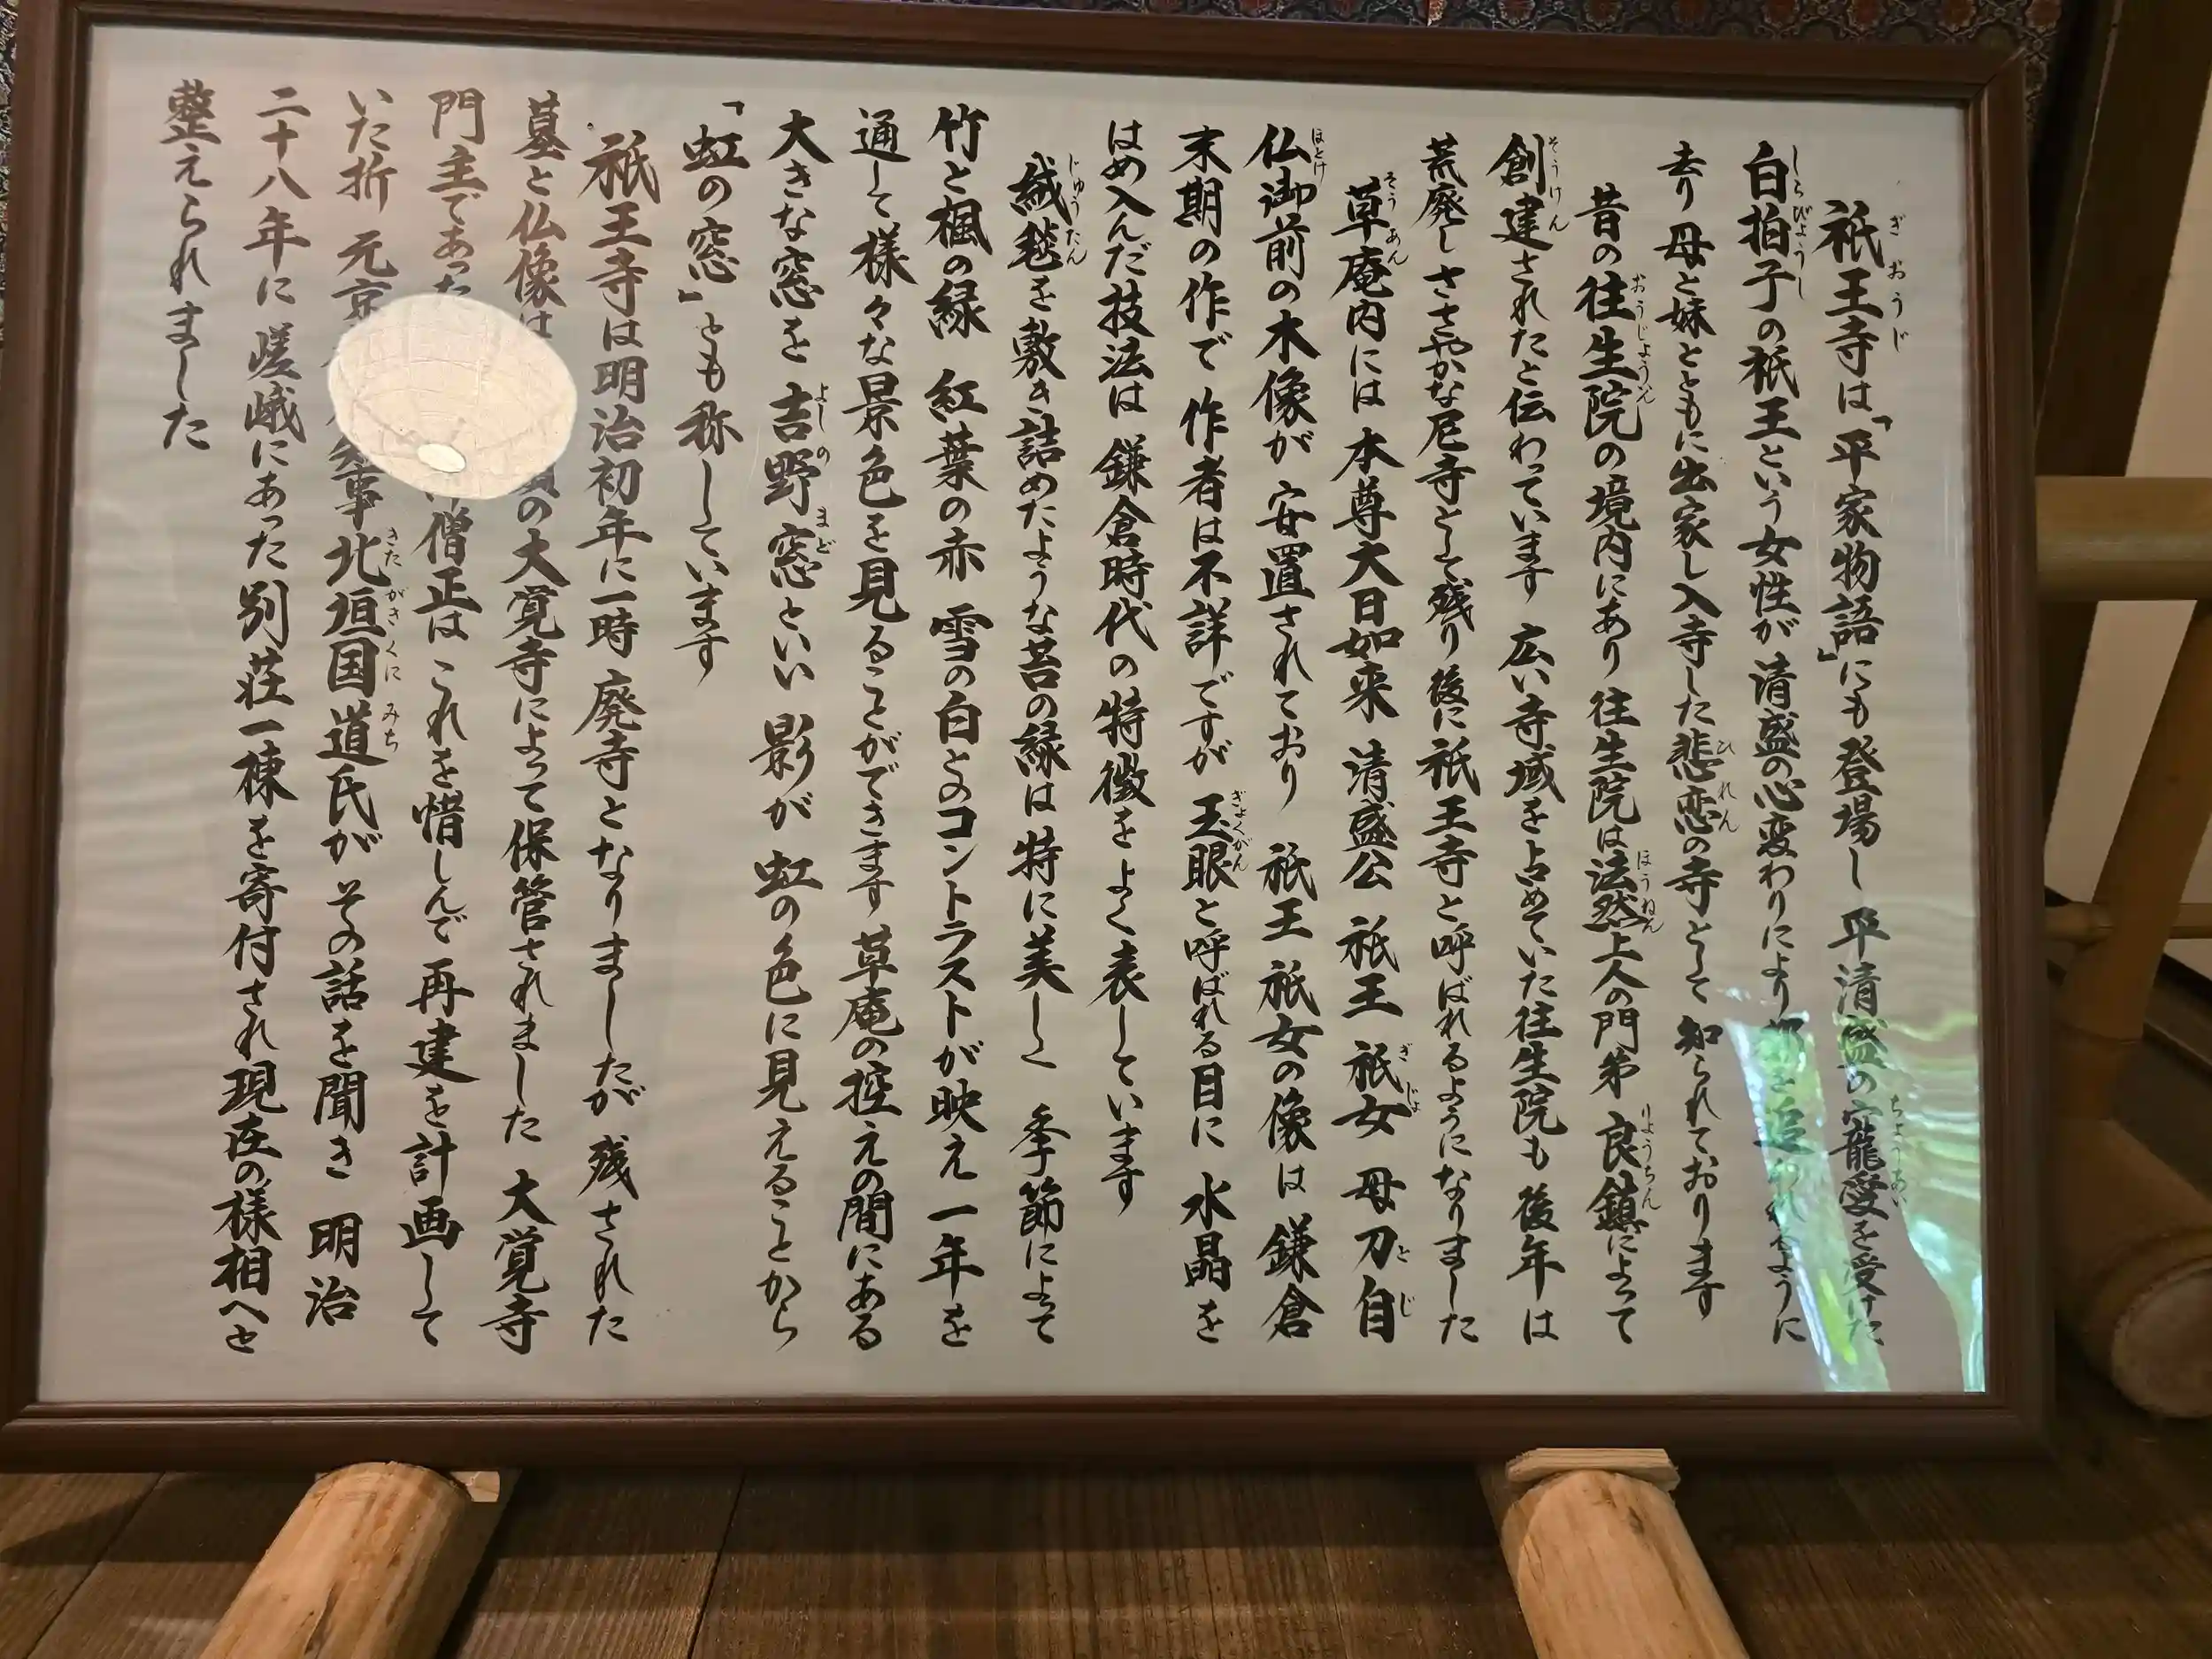 祇王寺は「平家物語」にも登場し 平清盛の寵愛を受けた
白拍子の祇王という女性が清盛の心変わりにより都を追われるように
去り 母と妹とともに出家し入寺した悲恋の寺として 知られております
昔の往生院の境内にあり 往生院は法然上人の門弟 良鎮によって
創建されたと伝わっています 広い寺域を占めていた往生院も 後年は
荒廃し ささやかな尼寺として残り 後に祇王寺と呼ばれるようになりました
草庵内には 本尊大日如来 清盛公 祇王 祇女 母刀自
仏御前の木像が 安置されており 祇王 祇女の像は 鎌倉
末期の作で 作者は不詳ですが 玉眼と呼ばれる目に 水晶を
はめ入んだ技法は 鎌倉時代の特徴をよく表しています
絨毯を敷き詰めたような苔の緑は特に美しく 季節によって
竹と楓の緑 紅葉の赤 雪の白とのコントラストが映え 一年を
通して様々な景色を見ることができます 草庵の控えの間にある
大きな窓を 吉野窓といい 影が 虹の色に見えることから
「虹の窓」とも称しています
祇王寺は明治初年に一時 廃寺となりましたが 残された
墓と仏像は の大覚寺によって保管されました 大覚寺
門主であった 僧正は これを惜しんで 再建を計画して
いた折 元京 知事 北垣国道氏が その話を聞き 明治
二十八年に 嵯峨にあった別荘一棟を寄付され現在の様相へと
整えられました